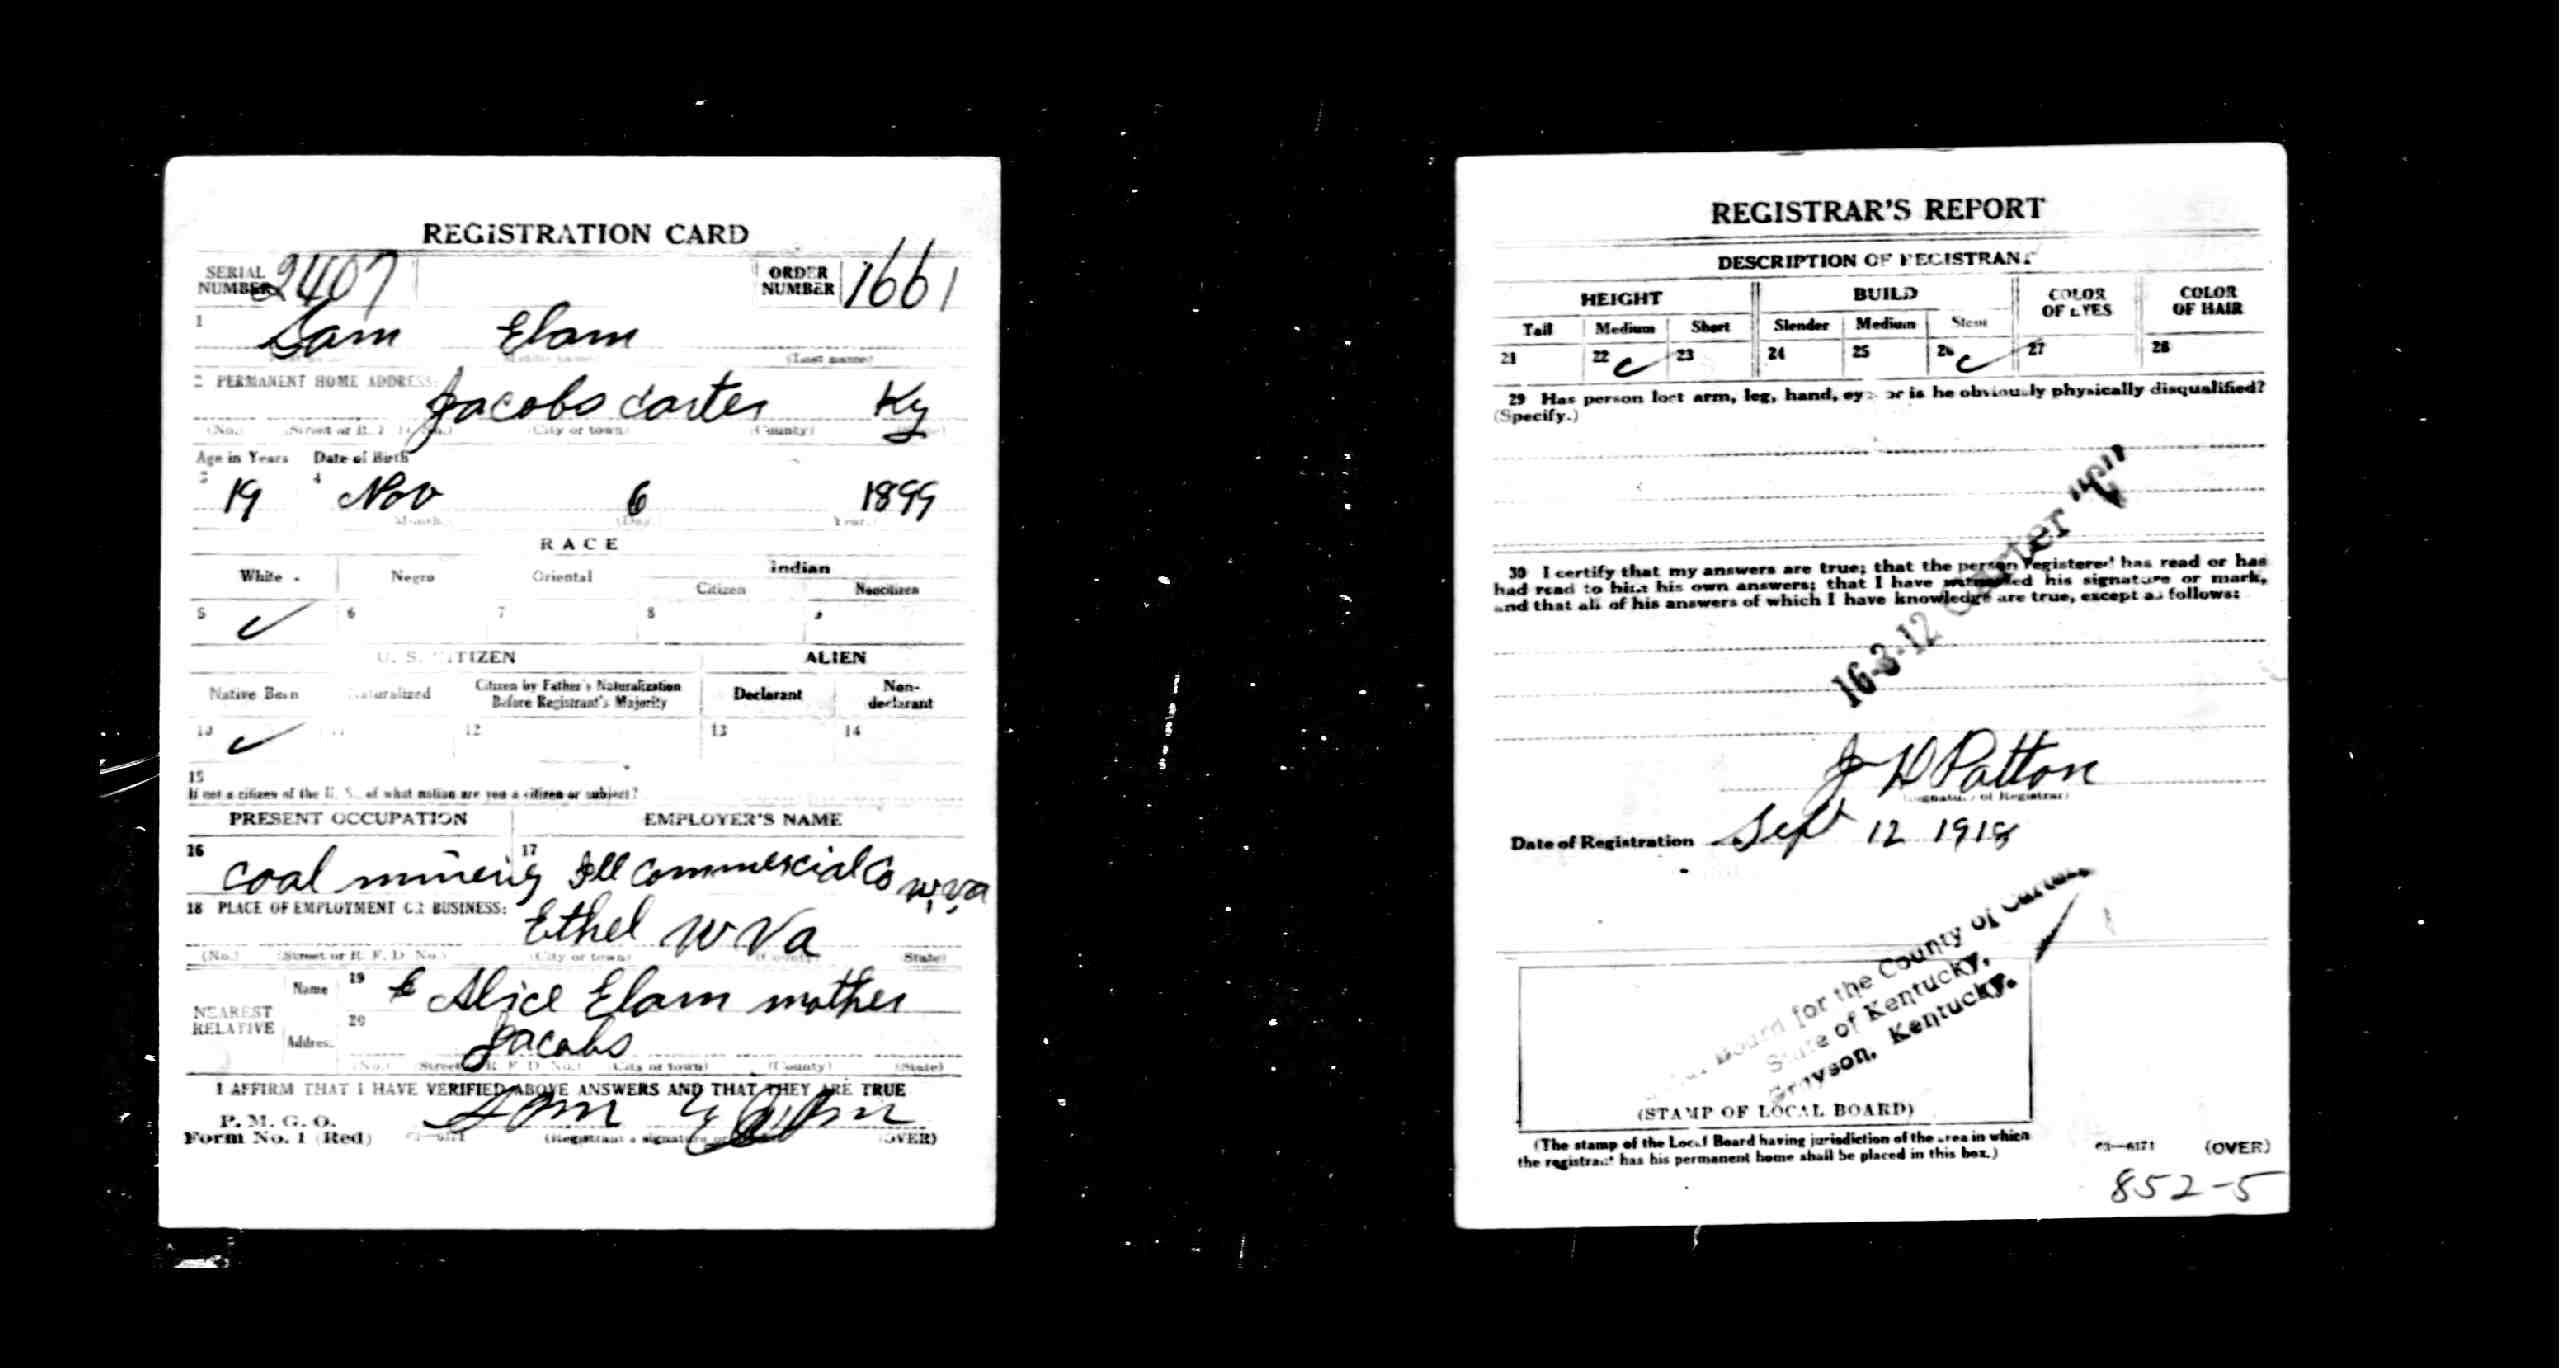 REGISTRATION CARD
SERIAL NUMBER 2407 ORDER NUMBER 1661
1 Sam Elam
(Middle name) (Last name)
2 PERMANENT HOME ADDRESS: Jacobs Carter Ky
(No.) (Street or R. F. D. No.) (City or town) (County)
Age in Years Date of Birth
3 19 4 Nov 6 1899
(Month.) (Day.) (Year.)
RACE
White Negro Oriental Indian
Citizen Noncitizen
5 ✓ 6 7 8 9
U. S. CITIZEN ALIEN
Native Born Naturalized Citizen by Father's Naturalization Before Registrant's Majority Declarant Non-declarant
10 ✓ 11 12 13 14
15
If not a citizen of the U. S., of what nation are you a citizen or subject?
PRESENT OCCUPATION EMPLOYER'S NAME
16 coal mining 17 Commercial Co W.Va
18 PLACE OF EMPLOYMENT OR BUSINESS: Ethel W Va
(No.) (Street or R. F. D. No.) (City or town) (County) (State)
NEAREST RELATIVE Name 19 Alice Elam mother
Address 20 Jacobs
(No.) (Street or R. F. D. No.) (City or town) (County) (State)
I AFFIRM THAT I HAVE VERIFIED ABOVE ANSWERS AND THAT THEY ARE TRUE
P. M. G. O.
Form No. 1 (Red) 03—6171 (Registrant's signature or (OVER)
Sam Elam
REGISTRAR'S REPORT
DESCRIPTION OF REGISTRANT
HEIGHT BUILD COLOR OF EYES COLOR OF HAIR
Tall Medium Short Slender Medium Stout
21 22 ✓ 23 24 25 26 ✓ 27 28
29 Has person lost arm, leg, hand, eye, or is he obviously physically disqualified?
(Specify.)
30 I certify that my answers are true; that the person registered has read or has
had read to him his own answers; that I have witnessed his signature or mark,
and that all of his answers of which I have knowledge are true, except as follows:
16-3-12 Carter "C"
J H Patton
(Signature of Registrar)
Date of Registration Sept 12 1918
Board for the County of Carter,
State of Kentucky,
Grayson, Kentucky.
(STAMP OF LOCAL BOARD)
(The stamp of the Local Board having jurisdiction of the area in which
the registrant has his permanent home shall be placed in this box.)
03—6171 (OVER)
852-5